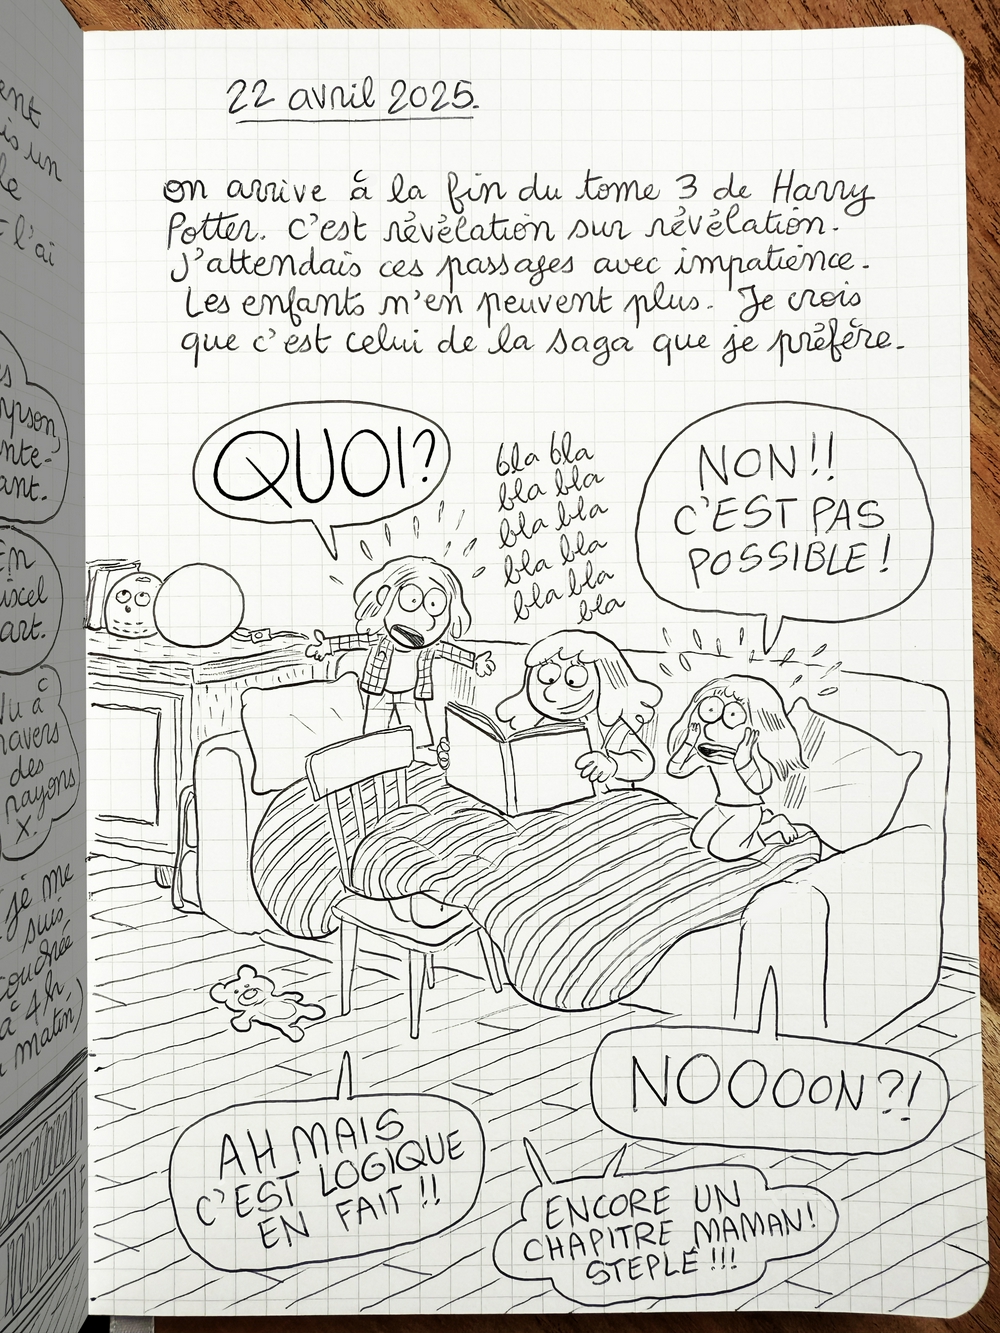 22 avril 2025.
on arrive à la fin du tome 3 de Harry
Potter. C'est révélation sur révélation.
J'attendais ces passages avec impatience.
Les enfants n'en peuvent plus. Je crois
que c'est celui de la saga que je préfère.
QUOI?
bla bla
bla bla
bla bla
bla bla
bla bla
bla
NON!!
C'EST PAS
POSSIBLE!
AH MAIS
C'EST LOGIQUE
EN FAIT!!
NOOOON?!
ENCORE UN
CHAPITRE MAMAN!
STEPLÉ!!!
un
l'ai
ant.
En
art.
Vu à
des
rayons
X.
je me
suis
à 4h
matin)